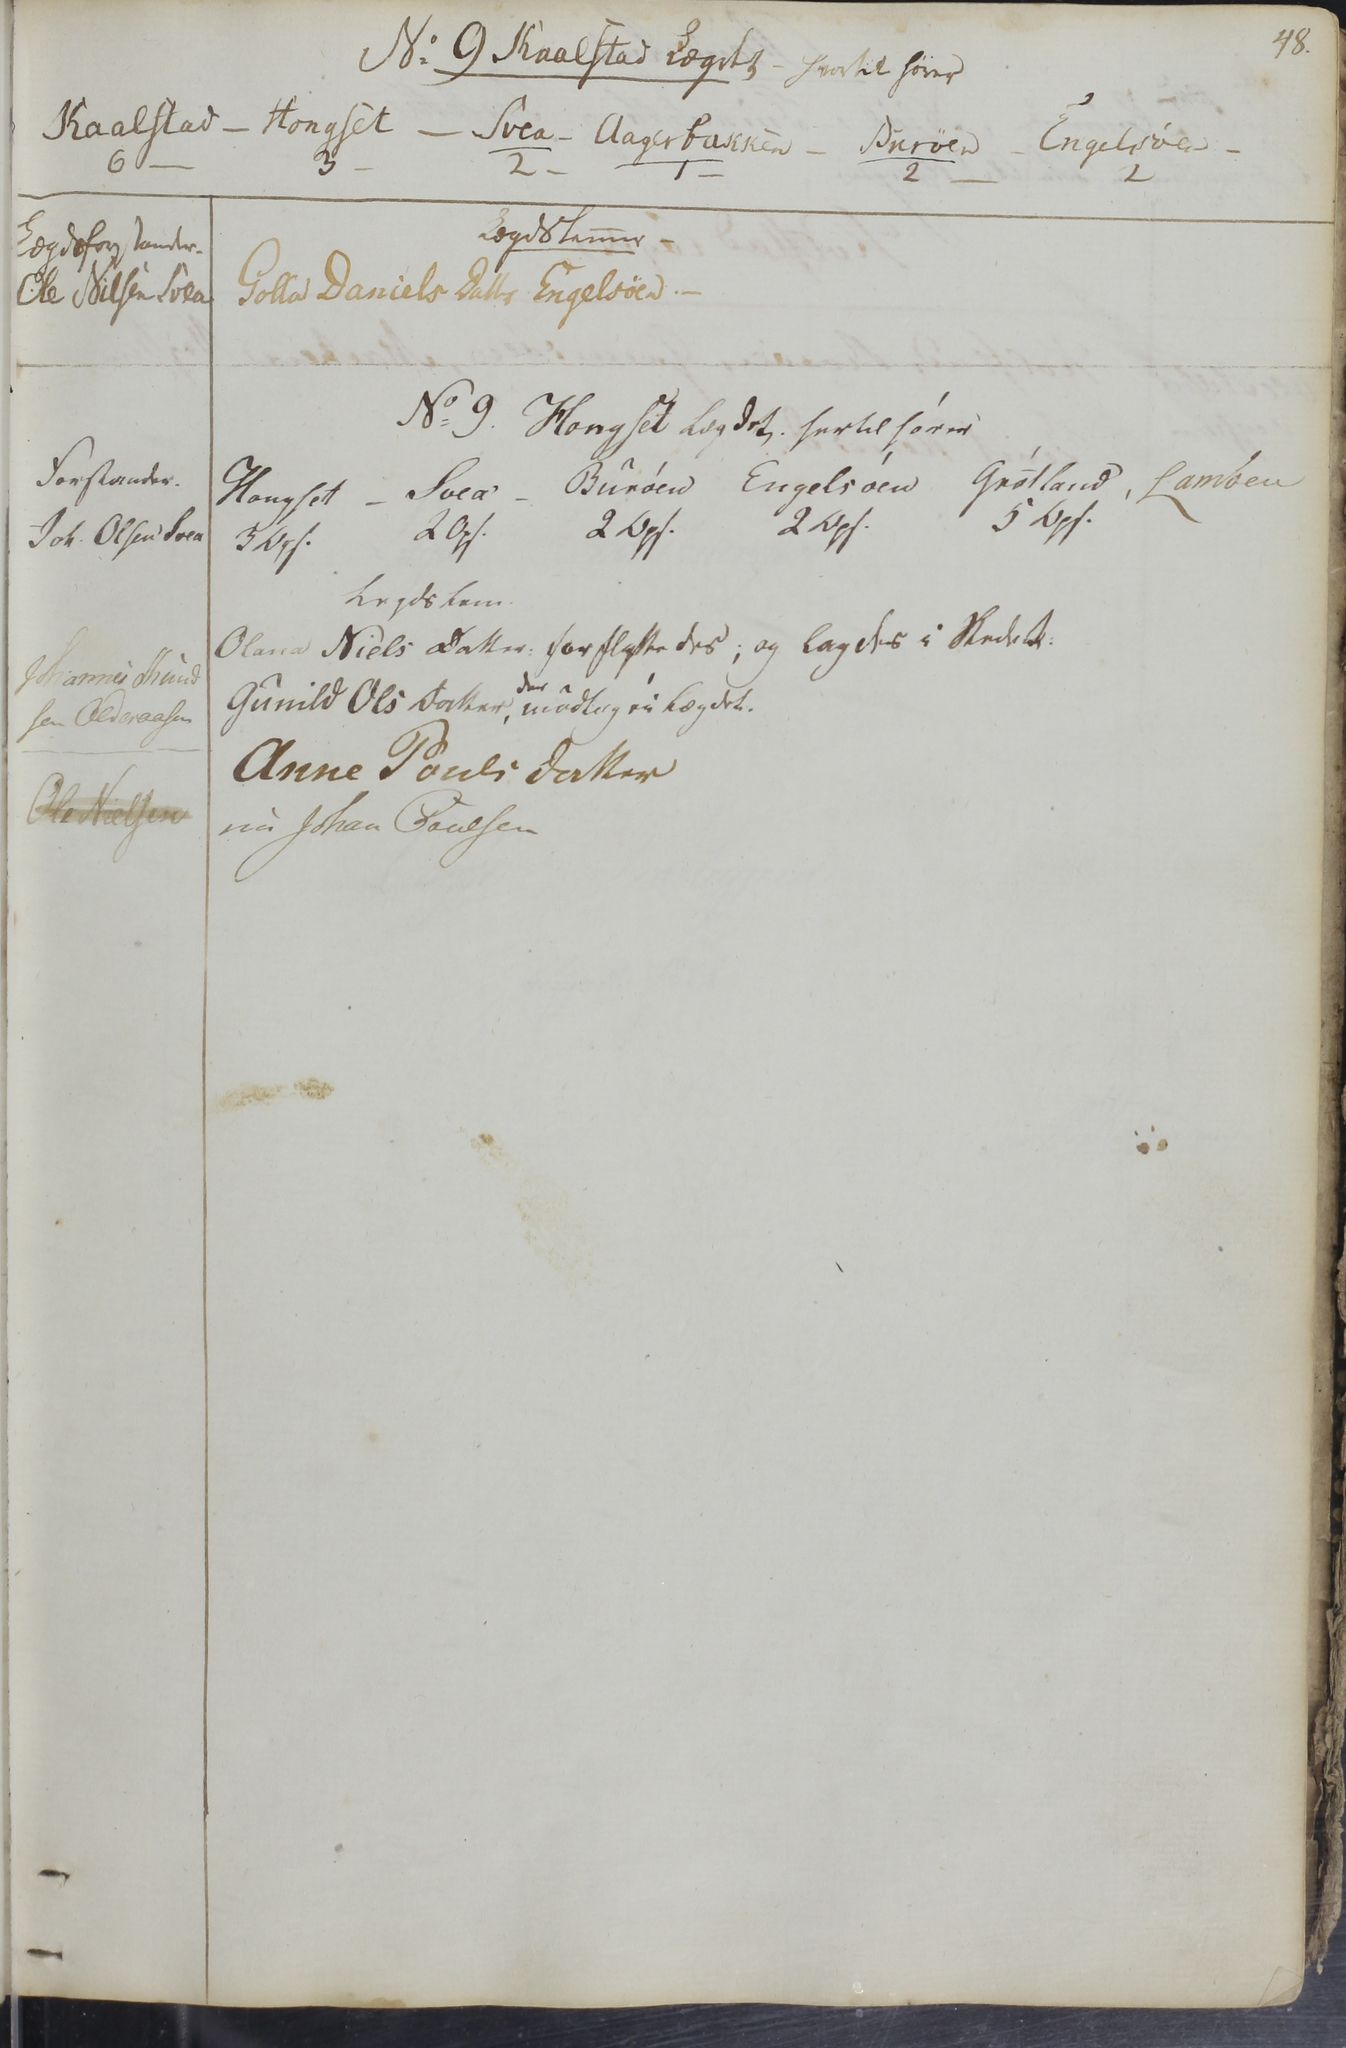 48.
No 9 Kaalstad Lægdt - hvortil hører
Kaalstad - Hongset - Svea - Aagerbakken - Burøen - Engelsøen -
6 - 3 - 2 - 1 - 2 - 2
Lægdsforstander.
Ole Nilsen Svea
Lægdslemmer -
Golla Daniels Datter Engelsøen. -
No 9. Hongset Lægdet. hertil hører
Forstander.
Joh. Olsen Svea
Hongset - Svea - Burøen Engelsøen Grøtland, Lamøen
3 Opf. 2 Opf. 2 Opf. 2 Opf. 5 Opf.
Legdslem.
Olana Niels Datter: forflyttedes; og lagdes i Stedet:
Gunild Ols Datter, der modtog en Lægdet.
Johannes Amund
sen Olderaasen
Anne Pouls Datter
Ole Nielsen
nu Johan Poulsen